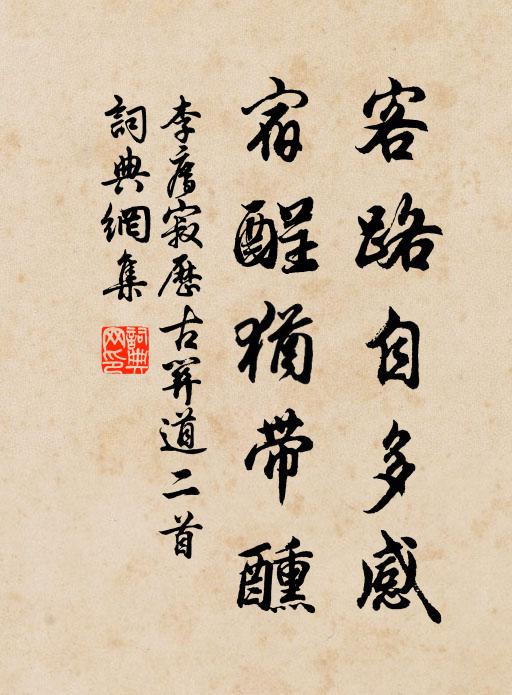 客路自多感
宿酲猶帶醺
李廌寂歷古井道二首
詞典網集
詞典網印